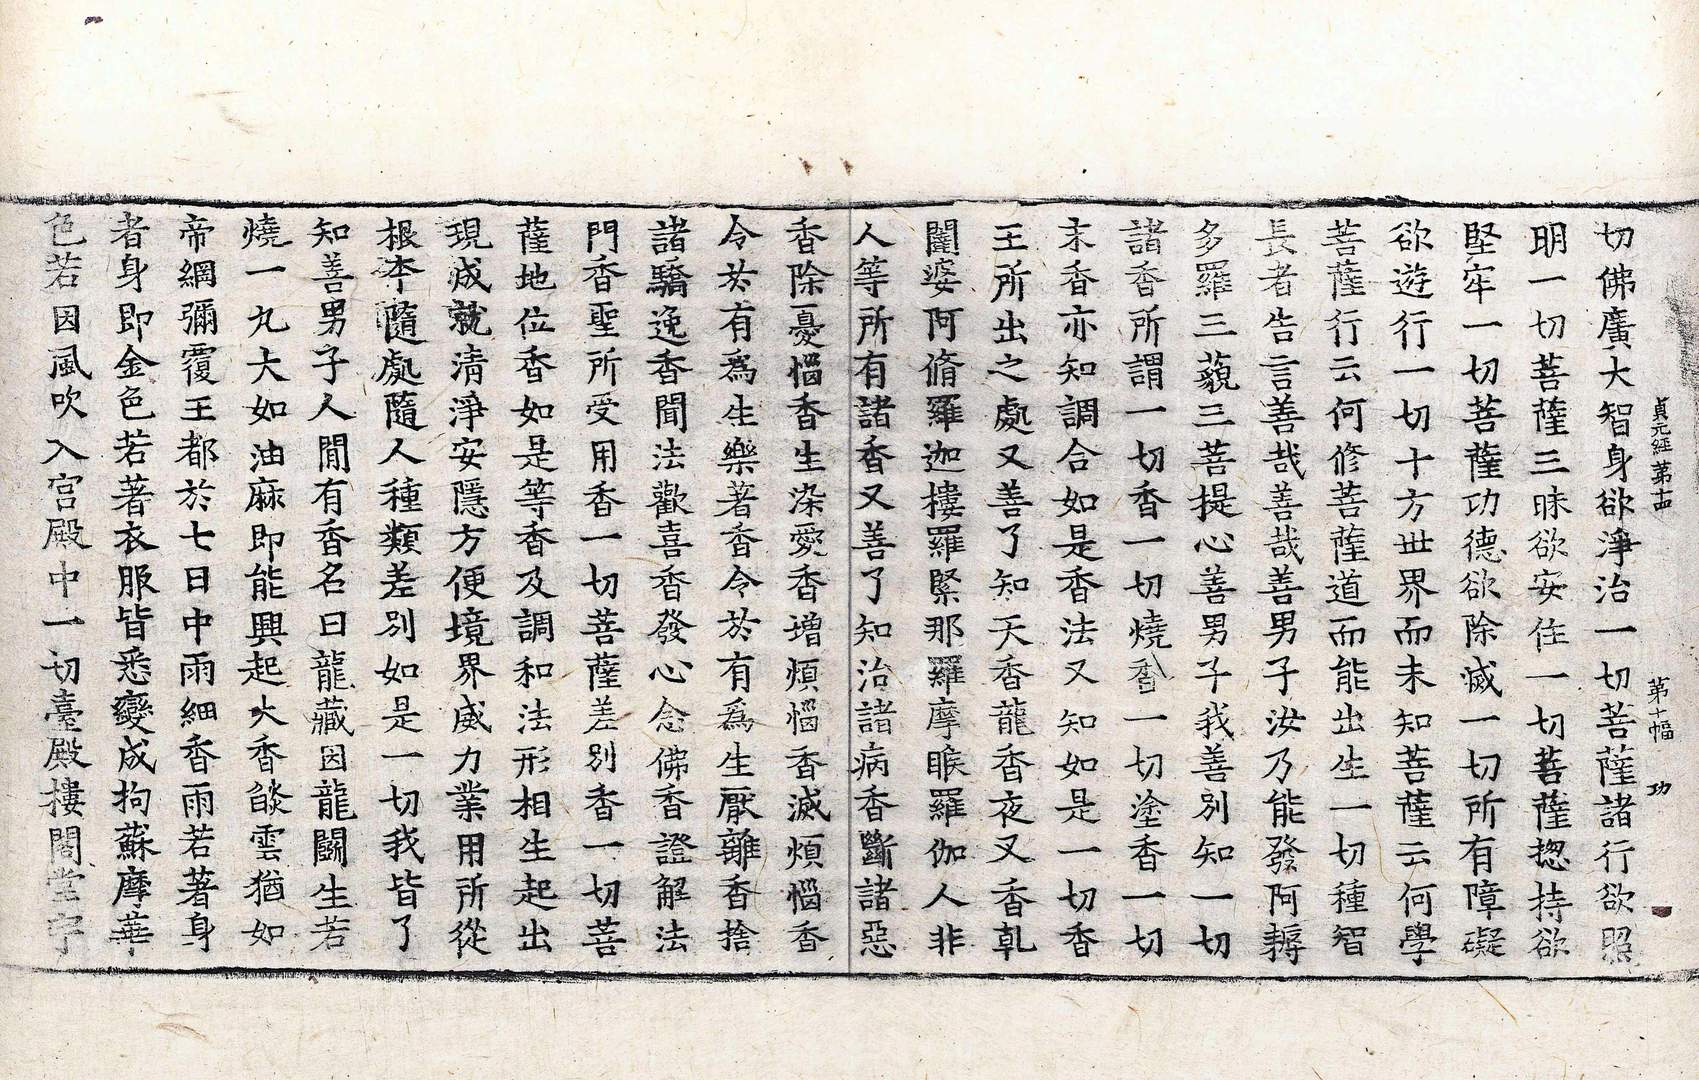 貞元經第十四 第十幅 功
切佛廣大智身欲淨治一切菩薩諸行欲照
明一切菩薩三昧欲安住一切菩薩揔持欲
堅牢一切菩薩功德欲除滅一切所有障礙
欲遊行一切十方世界而未知菩薩云何學
菩薩行云何修菩薩道而能出生一切種智
長者告言善哉善哉善男子汝乃能發阿耨
多羅三藐三菩提心善男子我善別知一切
諸香所謂一切香一切燒香一切塗香一切
末香亦知調合如是香法又知如是一切香
王所出之處又善了知天香龍香夜叉香乹
闥婆阿脩羅迦樓羅緊那羅摩睺羅伽人非
人等所有諸香又善了知治諸病香斷諸惡
香除憂惱香生染愛香增煩惱香滅煩惱香
令於有爲生樂著香令於有爲生厭離香捨
諸驕逸香聞法歡喜香發心念佛香證解法
門香聖所受用香一切菩薩差別香一切菩
薩地位香如是等香及調和法形相生起出
現成就清淨安隱方便境界威力業用所從
根本隨處隨人種類差別如是一切我皆了
知善男子人間有香名曰龍藏因龍鬭生若
燒一丸大如油麻即能興起大香燄雲猶如
帝網彌覆王都於七日中雨細香雨若著身
者身即金色若著衣服皆悉變成拘蘇摩華
色若因風吹入宮殿中一切臺殿樓閣堂宇